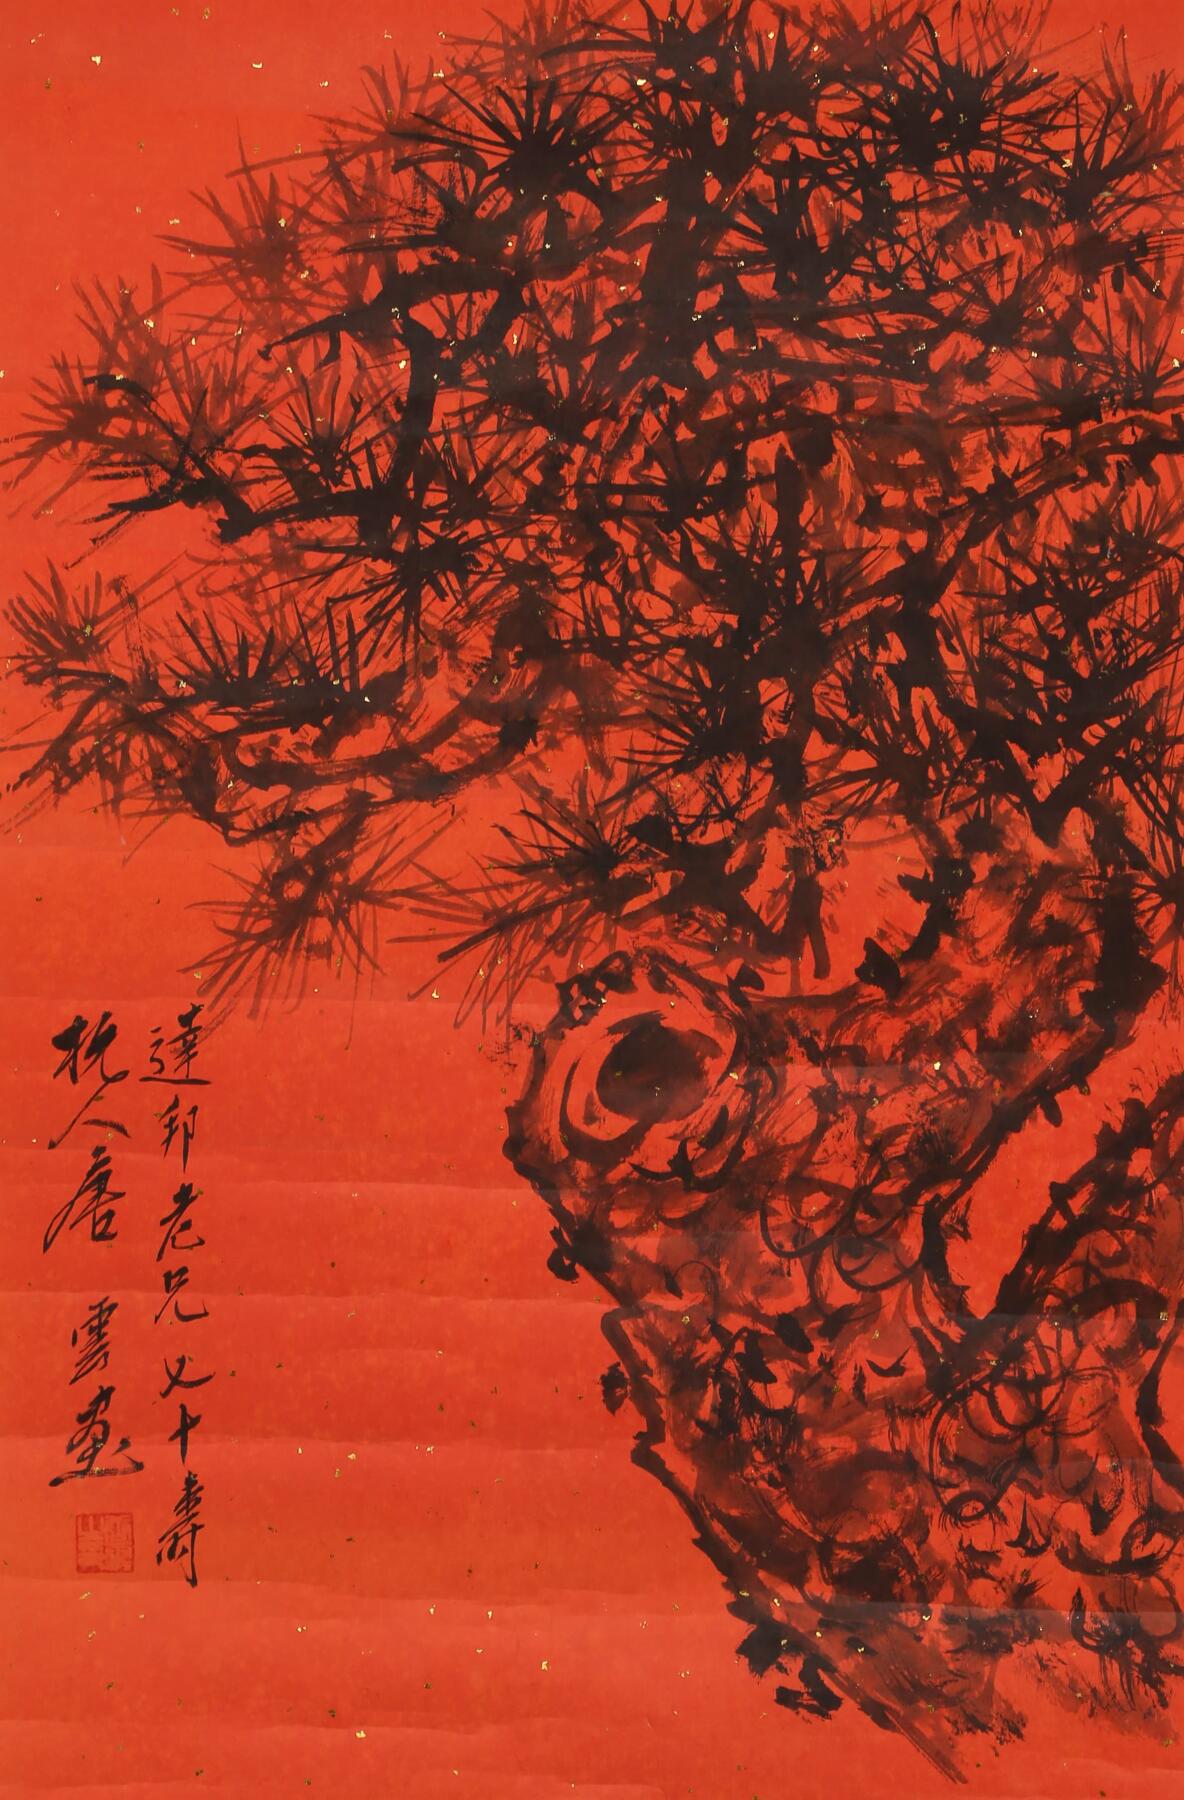 達邦老兄七十壽
杭人唐雲画